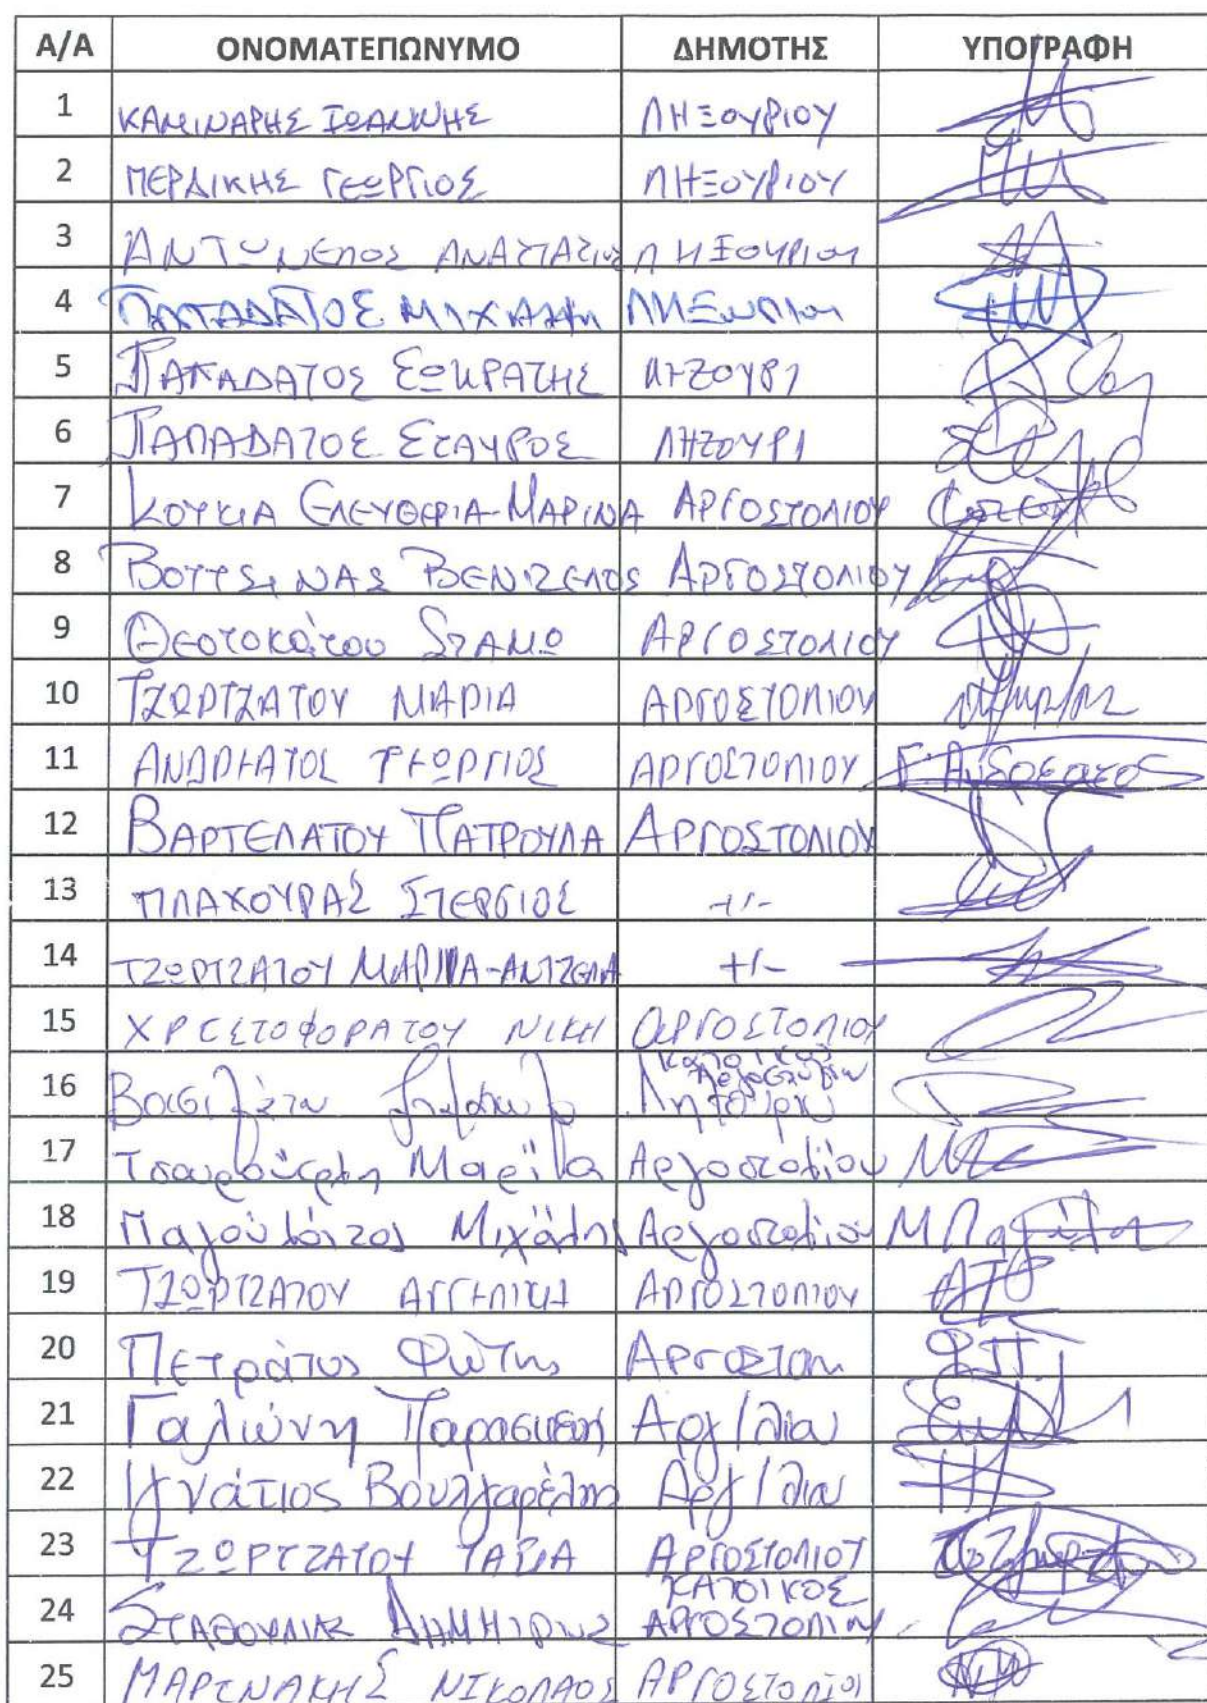 Α/Α ΟΝΟΜΑΤΕΠΩΝΥΜΟ ΔΗΜΟΤΗΣ ΥΠΟΓΡΑΦΗ
1 ΚΑΜΙΝΑΡΗΣ ΙΩΑΝΝΗΣ ΛΗΞΟΥΡΙΟΥ
2 ΠΕΡΔΙΚΗΣ ΓΕΩΡΓΙΟΣ ΛΗΞΟΥΡΙΟΥ
3 ΑΝΤΩΝΕΛΟΣ ΑΝΑΣΤΑΣΙΟΣ ΛΗΞΟΥΡΙΟΥ
4 ΠΑΠΑΔΑΤΟΣ ΛΗΞΟΥΡΙΟΥ
5 ΠΑΠΑΔΑΤΟΣ ΣΩΚΡΑΤΗΣ ΛΗΞΟΥΡΙ
6 ΠΑΠΑΔΑΤΟΣ ΣΤΑΥΡΟΣ ΛΗΞΟΥΡΙ
7 ΚΟΥΚΙΑ ΕΛΕΥΘΕΡΙΑ-ΜΑΡΙΝΑ ΑΡΓΟΣΤΟΛΙΟΥ
8 ΒΟΥΤΣΙΝΑΣ ΒΕΝΙΖΕΛΟΣ ΑΡΓΟΣΤΟΛΙΟΥ
9 Θεοτοκάτου ΣΤΑΜΩ ΑΡΓΟΣΤΟΛΙΟΥ
10 ΤΖΩΡΤΖΑΤΟΥ ΜΑΡΙΑ ΑΡΓΟΣΤΟΛΙΟΥ
11 ΑΝΔΡΕΑΤΟΣ ΓΕΩΡΓΙΟΣ ΑΡΓΟΣΤΟΛΙΟΥ Γ. Ανδρεατος
12 ΒΑΡΤΕΛΑΤΟΥ ΠΑΤΡΟΥΛΑ ΑΡΓΟΣΤΟΛΙΟΥ
13 ΠΛΑΧΟΥΡΑΣ ΣΤΕΡΓΙΟΣ -//-
14 ΤΖΩΡΤΖΑΤΟΥ ΜΑΡΙΑ-ΑΝΤΖΕΛΑ -//-
15 ΧΡΙΣΤΟΦΟΡΑΤΟΥ ΝΙΚΗ ΑΡΓΟΣΤΟΛΙΟΥ
16 Βασιλάτου Ληξουρίου
17 Μαρίνα Αργοστολίου
18 Παγουλάτος Μιχάλης Αργοστολίου
19 ΤΖΩΡΤΖΑΤΟΥ ΑΓΓΕΛΙΚΗ ΑΡΓΟΣΤΟΛΙΟΥ ΑΤ
20 Πετράτος Φώτης Φ.Π.
21 Γαλιώνη Παρασκευή Αργ/λίου
22 Ιγνάτιος Βουλγαρέλης Αργ/λίου
23 ΤΖΩΡΤΖΑΤΟΥ ΤΑΣΙΑ ΑΡΓΟΣΤΟΛΙΟΥ
24 ΣΤΑΘΟΥΛΙΑΣ ΔΗΜΗΤΡΙΟΣ ΚΑΤΟΙΚΟΣ ΑΡΓΟΣΤΟΛΙΟΥ
25 ΜΑΡΙΝΑΚΗΣ ΝΙΚΟΛΑΟΣ ΑΡΓΟΣΤΟΛΙΟΥ